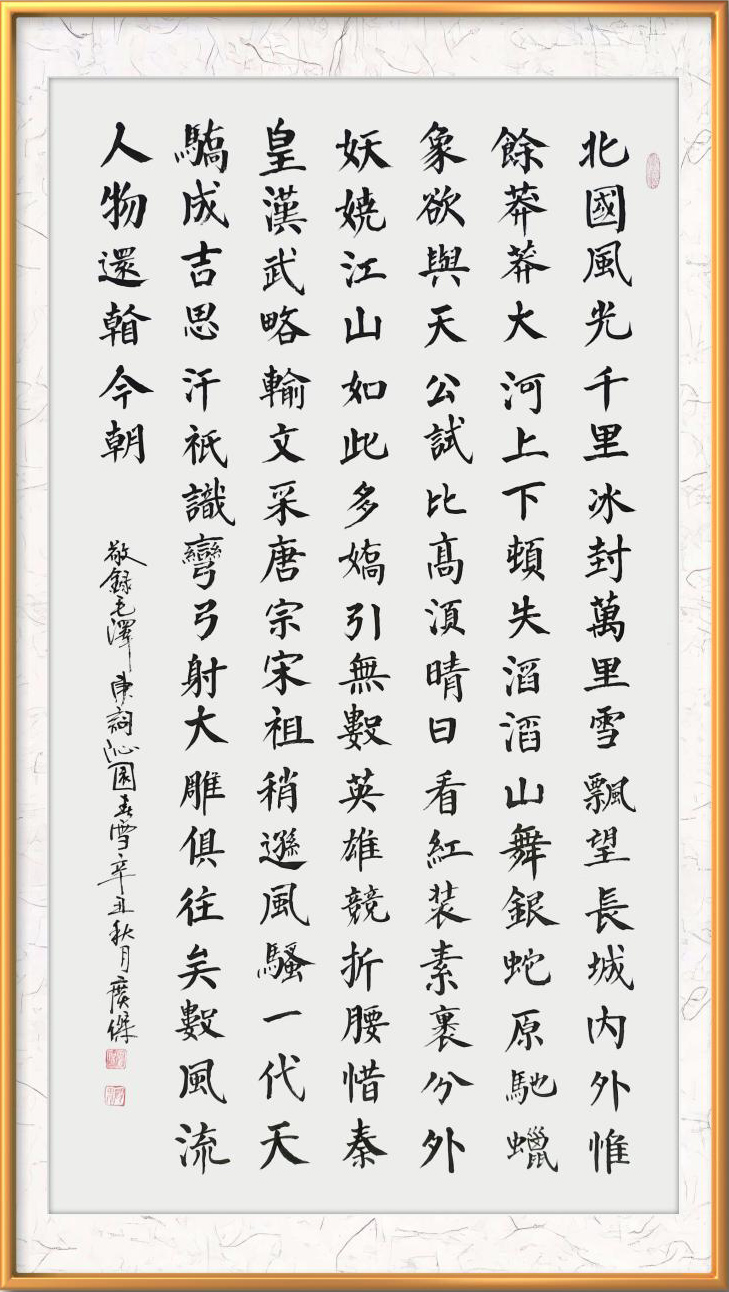 北國風光千里冰封萬里雪飄望長城內外惟
餘莽莽大河上下頓失滔滔山舞銀蛇原馳蠟
象欲與天公試比髙湏晴日看紅裝素裹分外
妖嬈江山如此多嬌引無數英雄競折腰惜秦
皇漢武略輸文采唐宗宋祖稍遜風騷一代天
驕成吉思汗祇識彎弓射大雕俱往矣數風流
人物還看今朝
敬録毛澤東詞沁園春雪辛丑秋月廣傑